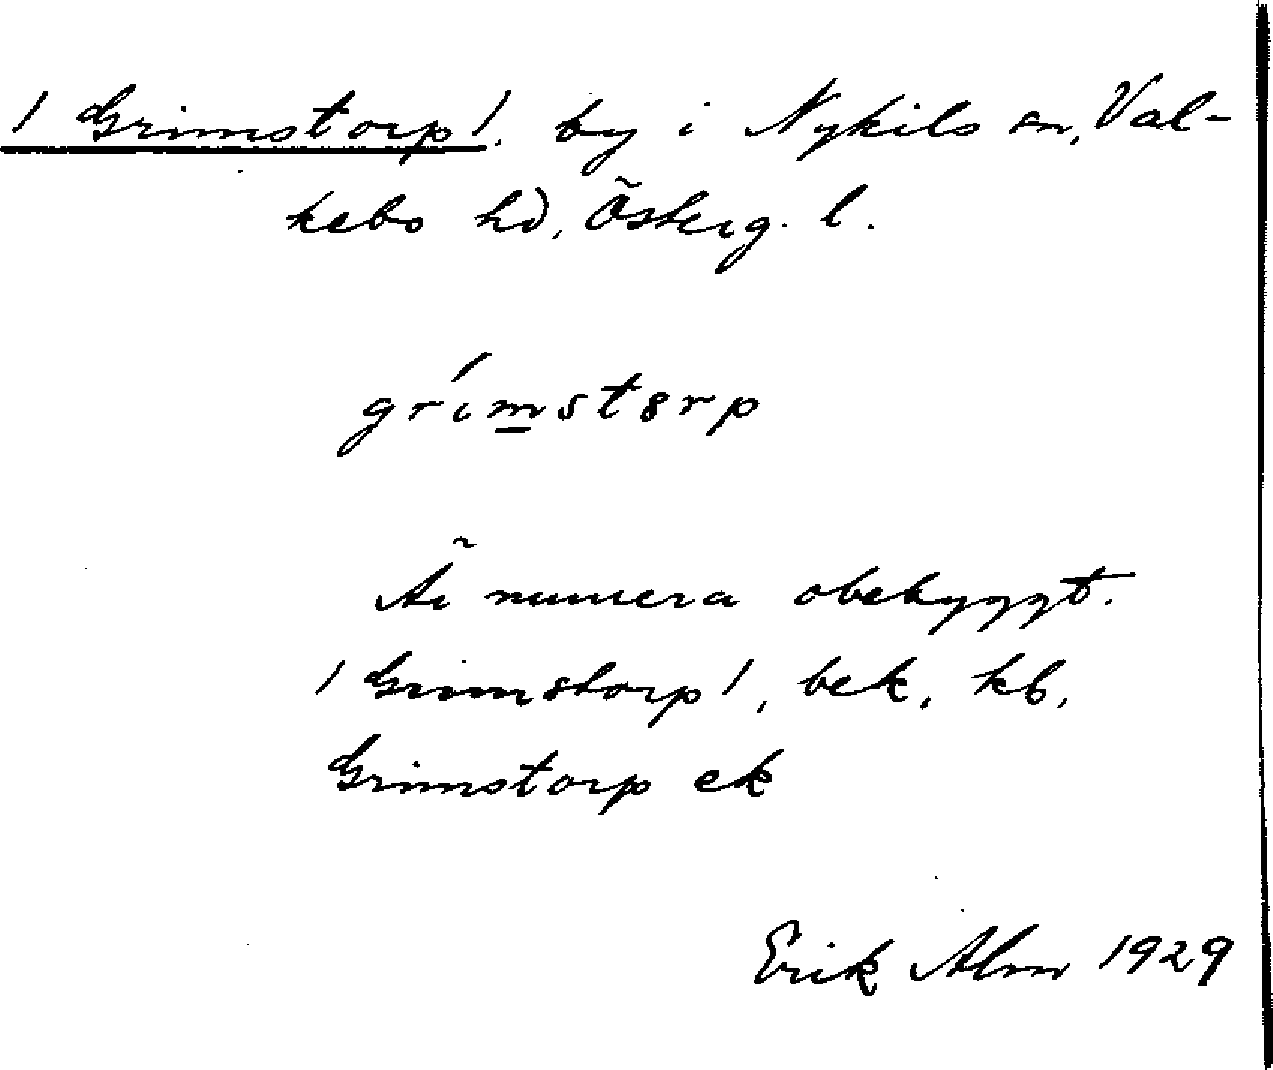 /Grimstorp/, by i Nykils sn, Val-
kebo hd, Österg. l.
grímstərp
Är numera obebyggt.
/Grimstorp/, bek. kb,
Grimstorp ek
Erik Alm 1929